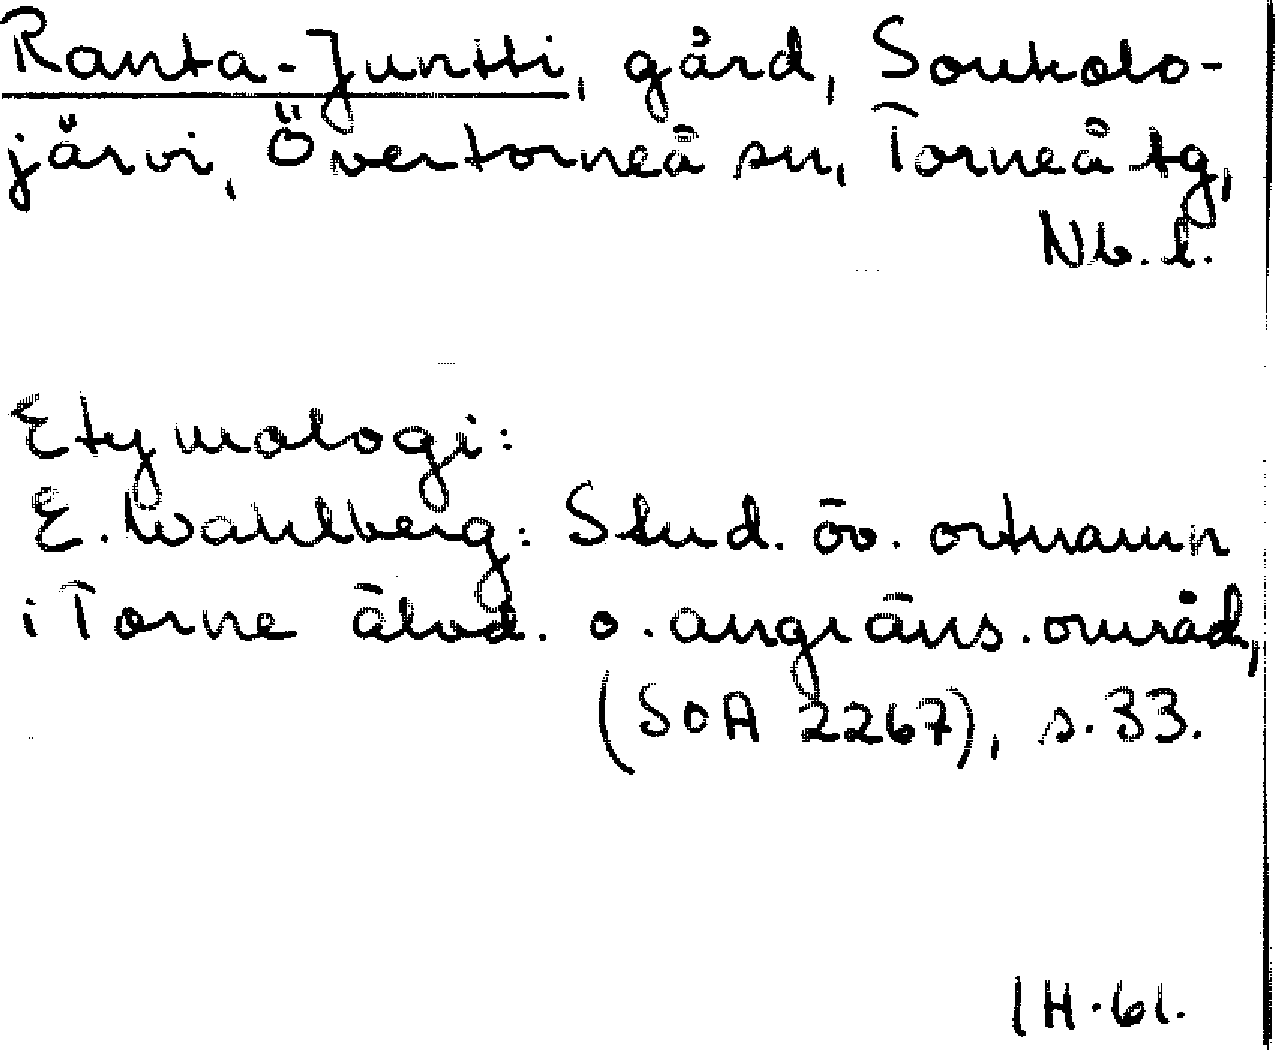 Ranta-Juntti, gård, Soukolo-
järvi, Övertorneå sn, Torneå tg,
Nb. l.
Etymologi:
E. Wahlberg: Stud. öv. ortnamn
i Torne älvd. o. angräns. områd,
(SOA 2267), s. 33.
IH. 61.